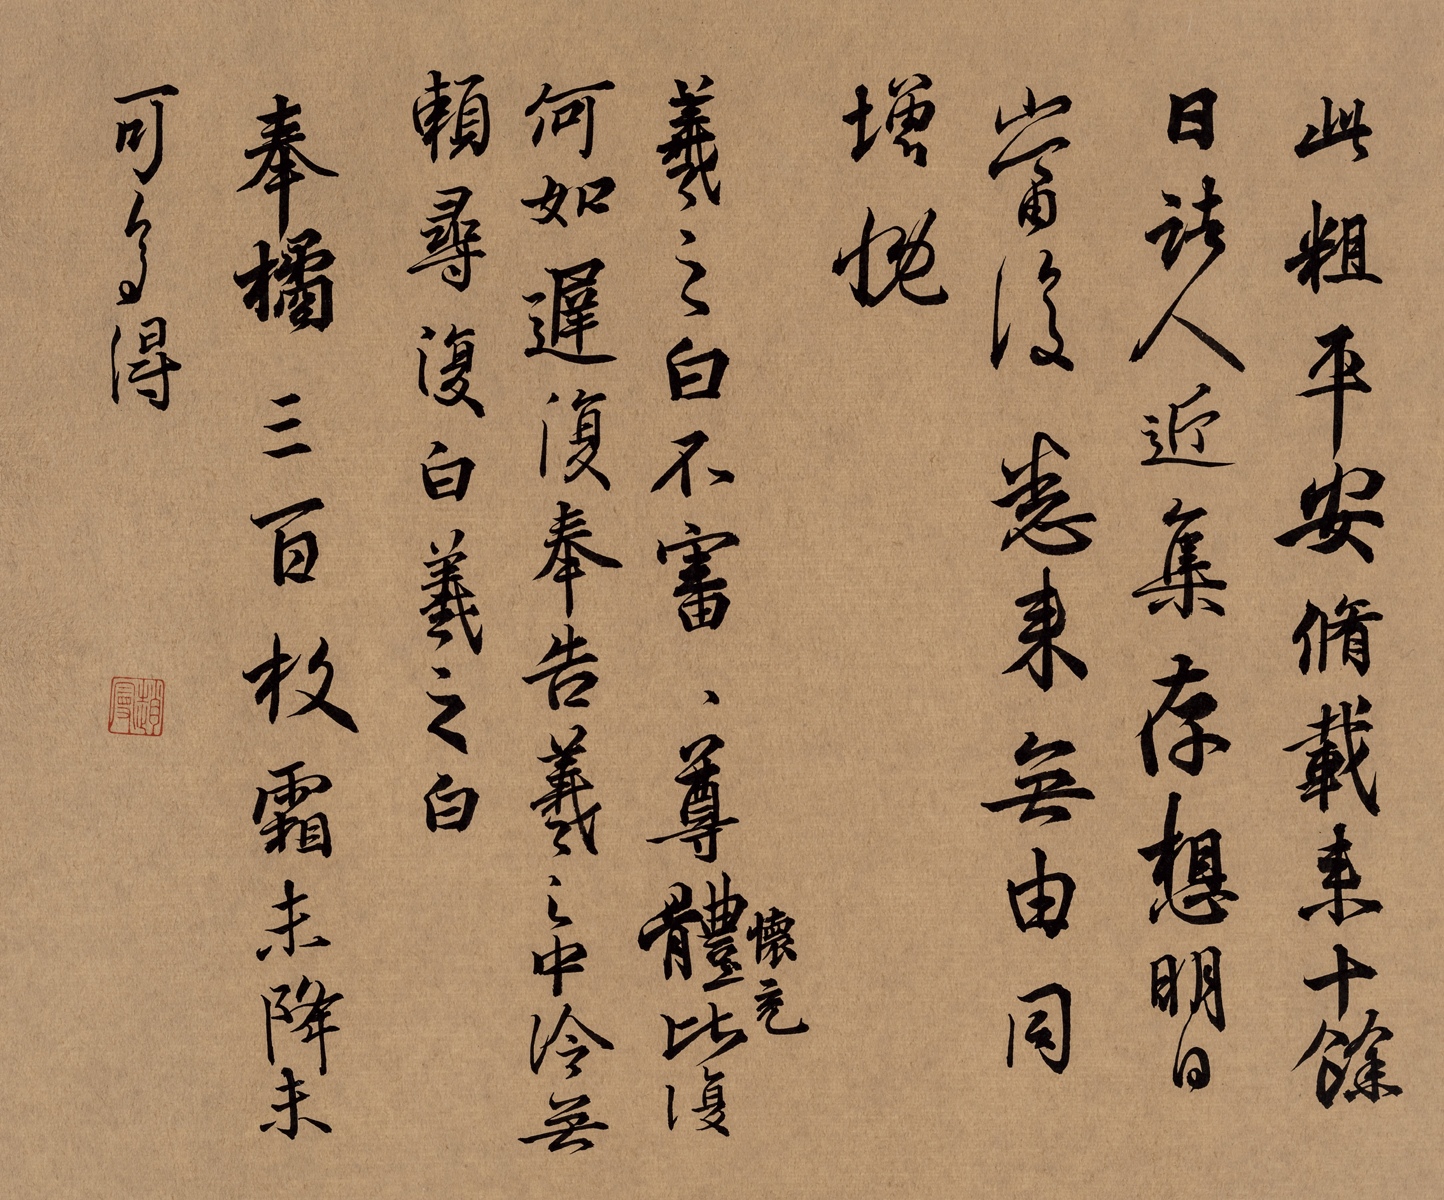 此粗平安脩載来十餘
日諸人近集存想明日
當復悉来無由同
增慨
懷充
羲之白不審、尊體比復
何如遲復奉告羲之中冷無
賴尋復白羲之白
奉橘三百枚霜未降未
可多得